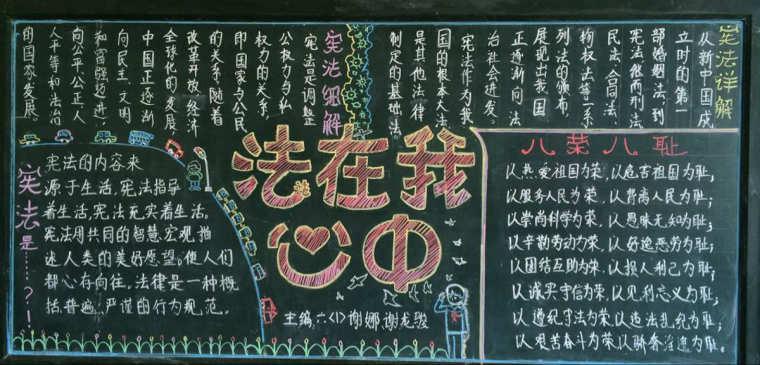 宪法详解
从新中国成
立时的第一
部婚姻法，到
宪法、继而刑法
民法、合同法、
物权法等一系
列法的颁布，
展现出我国
正逐渐向法
治社会进发。
宪法作为我
国的根本大法
是其他法律
制定的基础法。
宪法细解
宪法是调整
公权力与私
权力的关系，
即国家与公民
的关系，随着
改革开放、经济
全球化的发展
中国正逐渐
向民主、文明
和富强迈进；
向公平、公正人
人平等和法治
的国家发展。
法在我
心中
主编：六〈1〉谢娜 谢龙骏
宪法是……？！
宪法的内容来
源于生活，宪法指导
着生活，宪法充实着生活。
宪法用共同的智慧，宏观描
述人类的美好愿望。使人们
都心存向往，法律是一种概
括、普遍、严谨的行为规范。
八荣八耻
以热爱祖国为荣，以危害祖国为耻；
以服务人民为荣，以背离人民为耻；
以崇尚科学为荣，以愚昧无知为耻；
以辛勤劳动为荣，以好逸恶劳为耻；
以团结互助为荣，以损人利己为耻；
以诚实守信为荣，以见利忘义为耻；
以遵纪守法为荣，以违法乱纪为耻；
以艰苦奋斗为荣，以骄奢淫逸为耻。